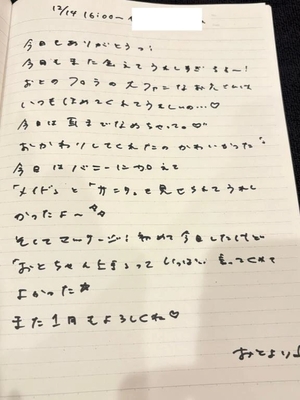 12/14 16:00~
今日もありがとうっ！
今日もまた会えてうれしすぎちる〜！
おとのフロラの大ファンなお兄さんは
いつもほめてくれてうれしいの…♡
今日は までなめちゃって♡
おかわりしてくれたのかわいかった
今日はバニーに加えて
「メイド」と「サンタ」も見せられてうれし
かったよ〜
そしてマッサージ！初めて今日したけど
「おとちゃん上手」っていっぱい言ってくれて
よかった★
また1月もよろしくね♡
おとより